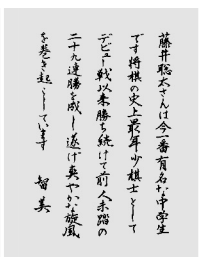 藤井聡太さんは今一番有名な中学生
です将棋の史上最年少棋士として
デビュー戦以来勝ち続けて前人未踏の
二十九連勝を成し遂げ爽やかな旋風
を巻き起こしています
智美